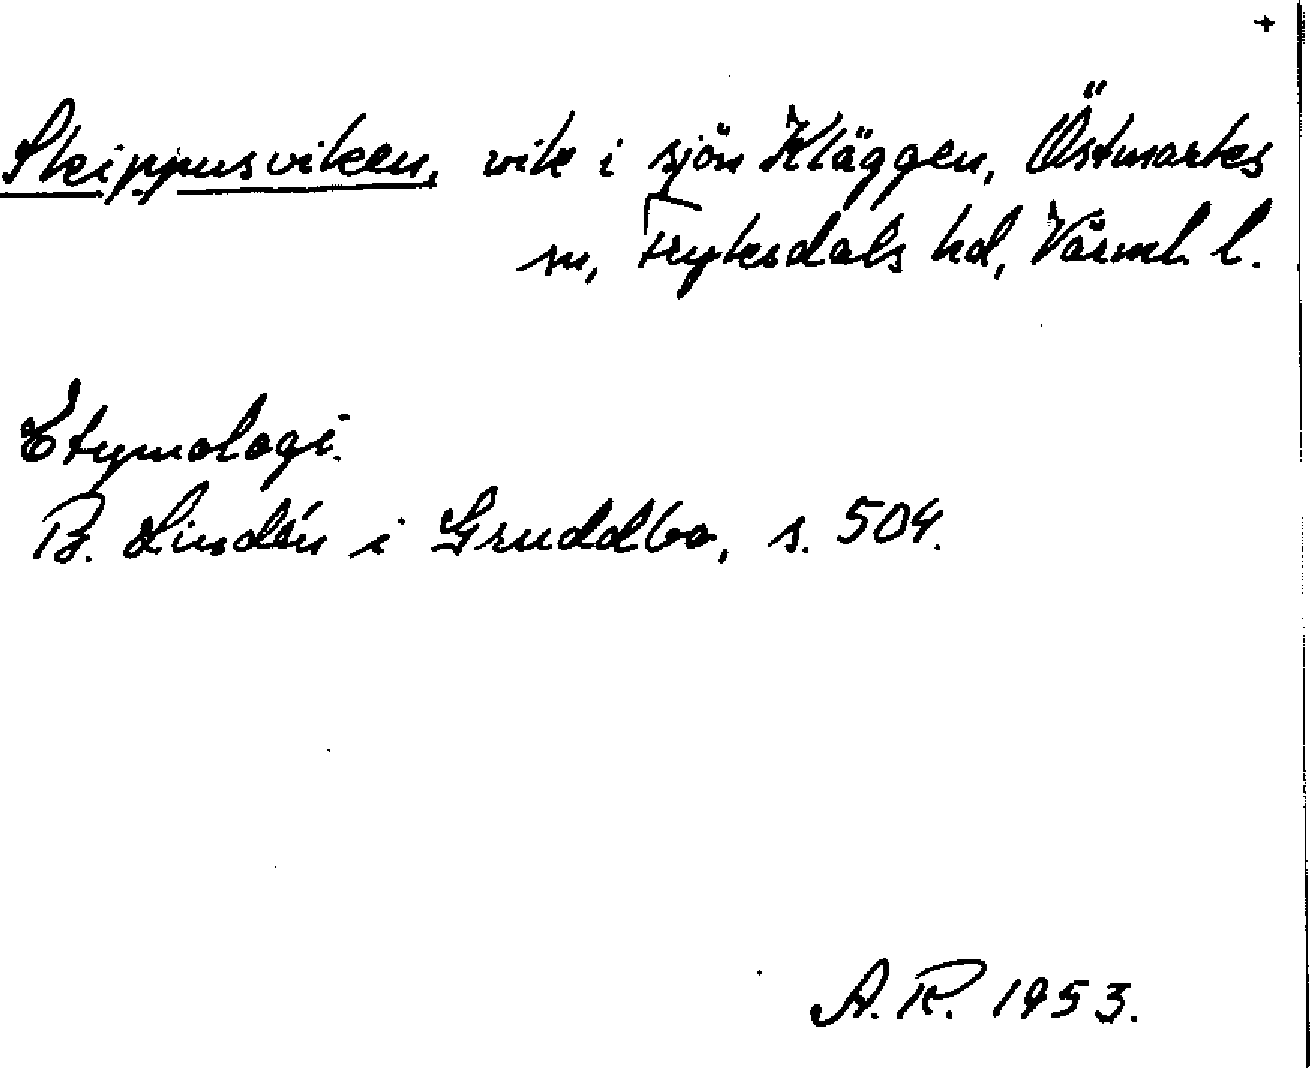 +
Skippusviken, vik i sjön Kläggen, Östmarks
sn, Fryksdals hd, Värml. l.
Etymologi.
B. Lindén i Gruddbo, s. 504.
A.R. 1953.